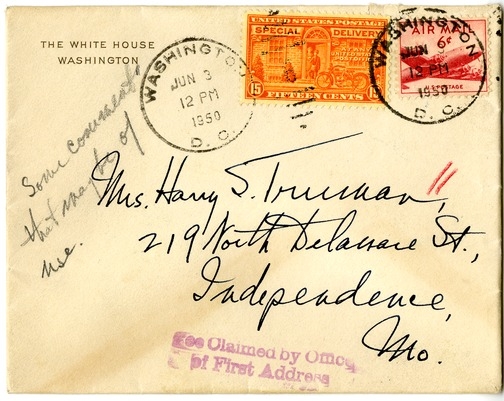 THE WHITE HOUSE
WASHINGTON
WASHINGTON
JUN 3
12 PM
1950
D. C.
UNITED STATES POSTAGE
SPECIAL DELIVERY
15 FIFTEEN CENTS 15
WASHINGTON
JUN
12 PM
1950
D. C.
AIR MAIL
6¢
POSTAGE
Some comment
that may be of
use.
Mrs. Harry S. Truman,
219 North Delaware St.,
Independence,
Mo.
Fee Claimed by Office
of First Address